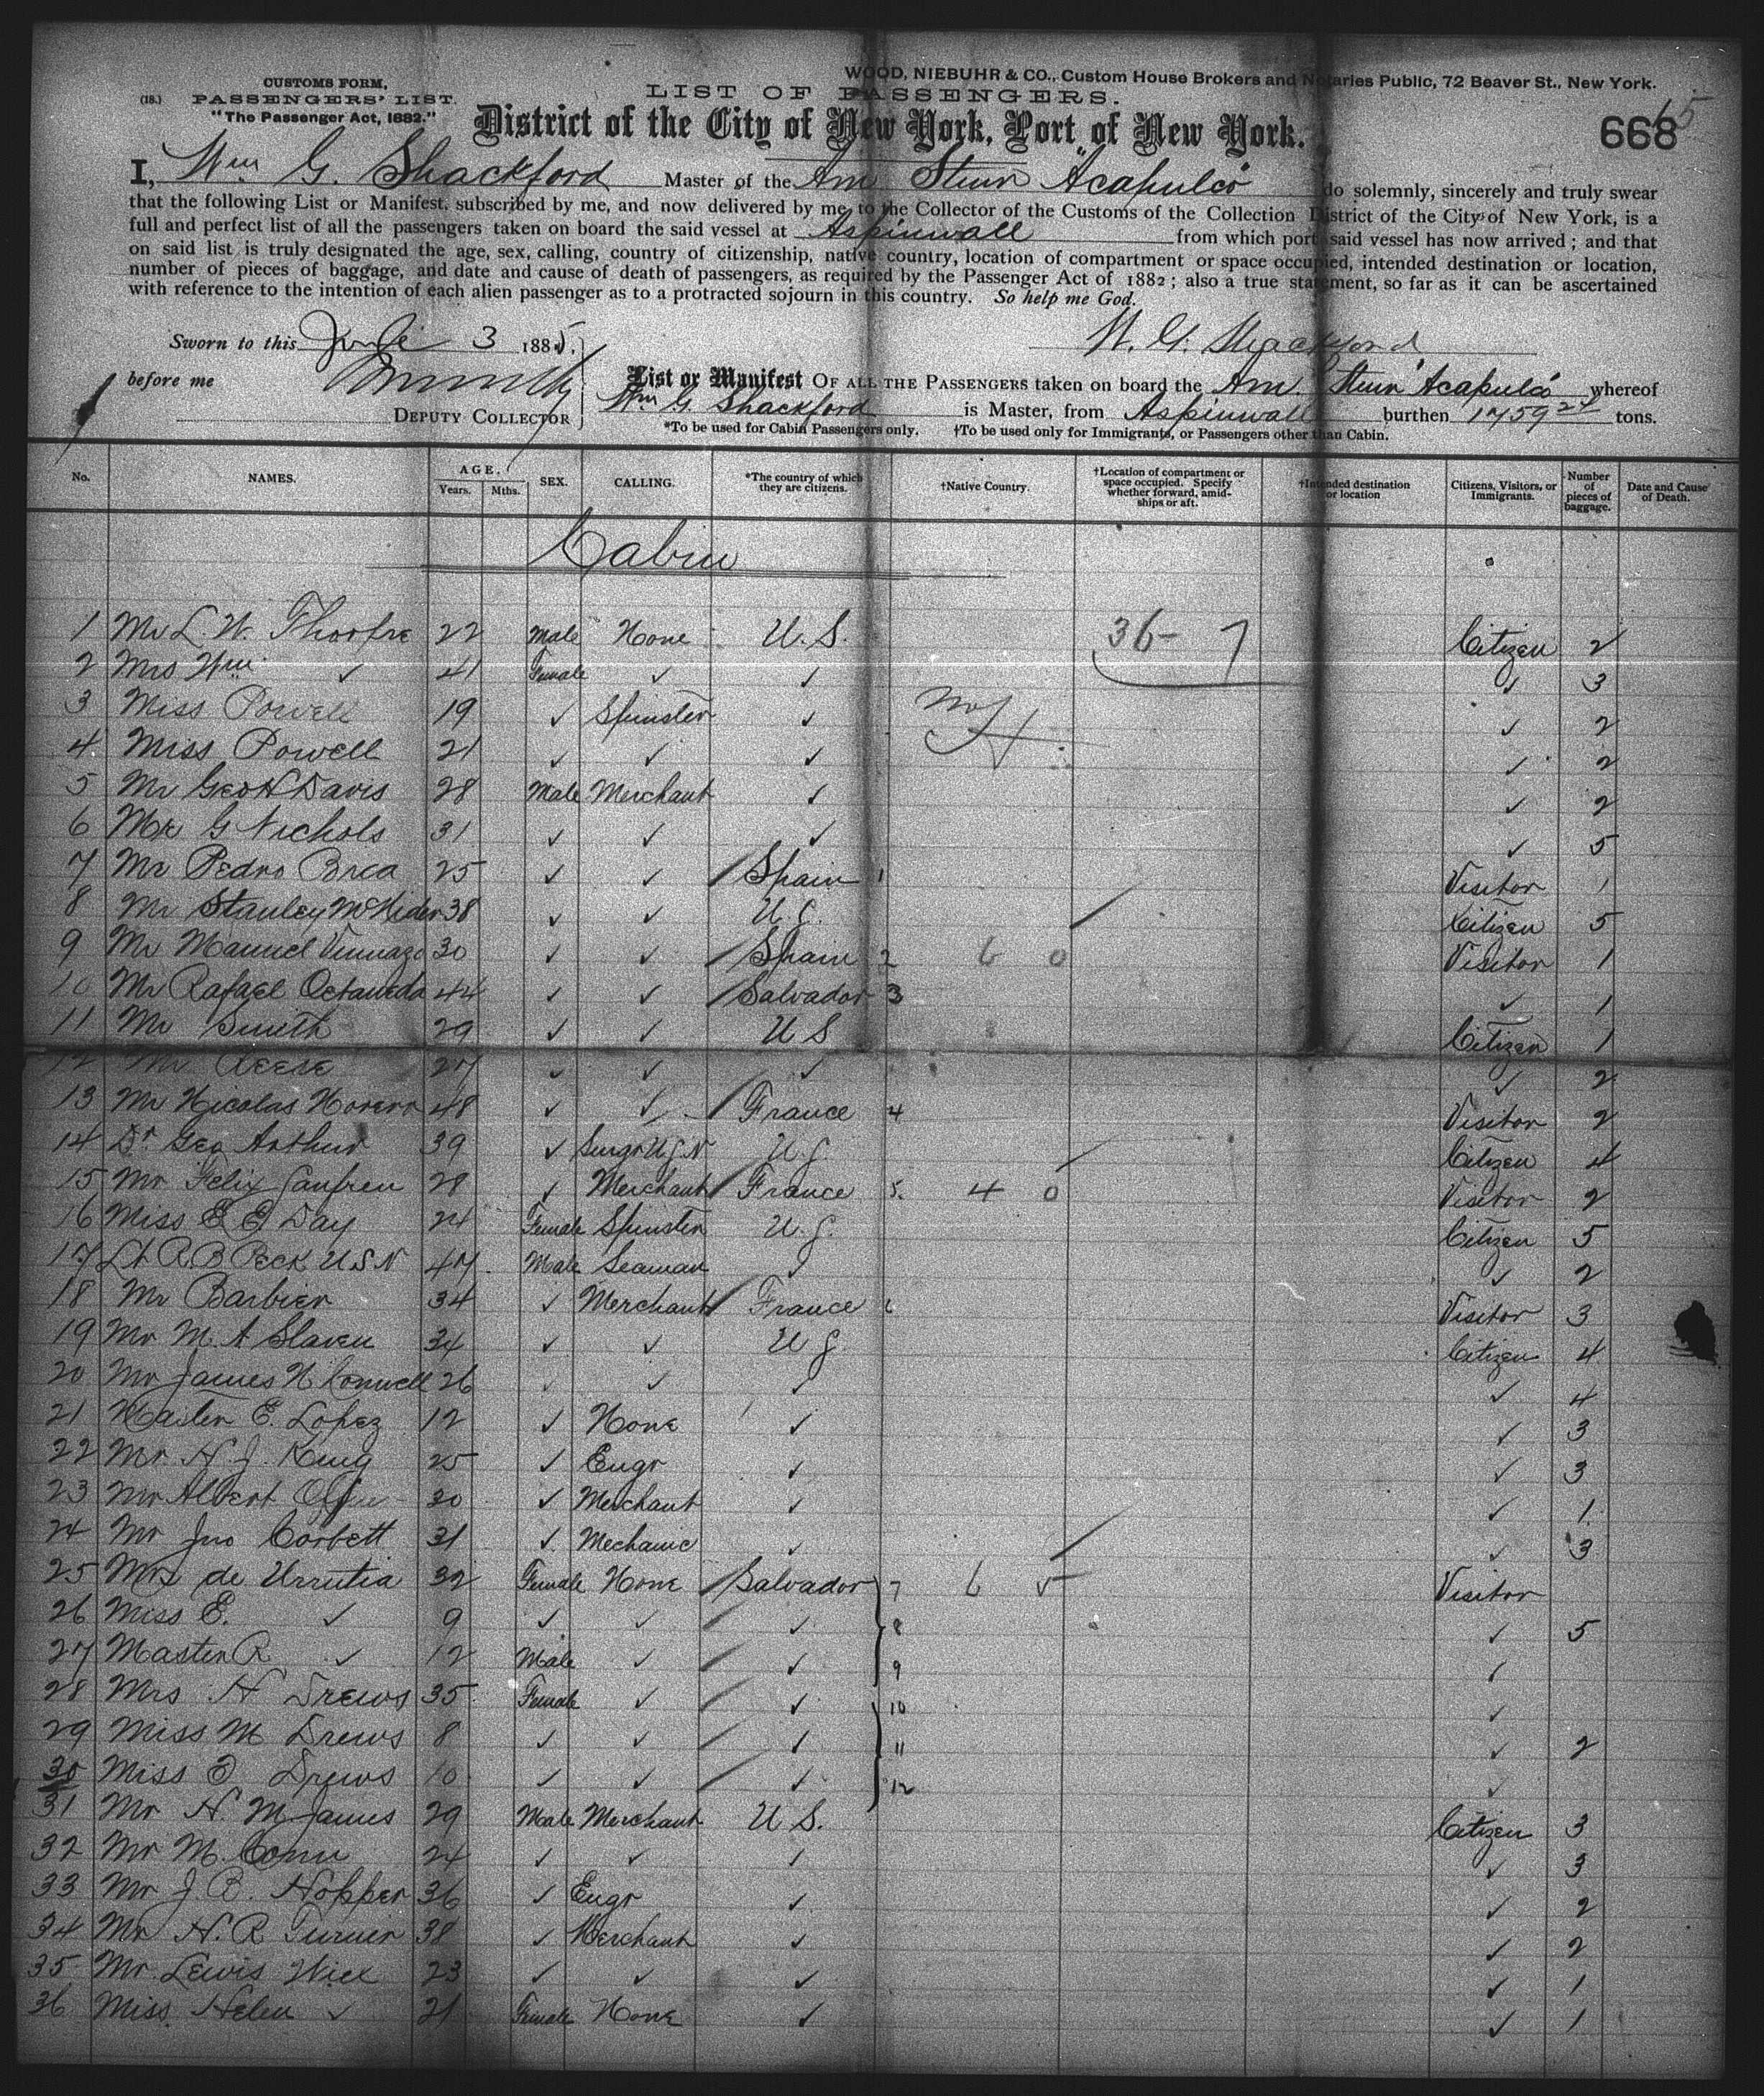 WOOD, NIEBUHR & CO., Custom House Brokers and Notaries Public, 72 Beaver St., New York.
CUSTOMS FORM,
(18.) PASSENGERS' LIST.
"The Passenger Act, 1882."
LIST OF PASSENGERS.
District of the City of New York, Port of New York.
668
65
I, Wm G. Shackford Master of the Am Steur "Acapulco" do solemnly, sincerely and truly swear
that the following List or Manifest, subscribed by me, and now delivered by me to the Collector of the Customs of the Collection District of the City of New York, is a
full and perfect list of all the passengers taken on board the said vessel at Aspinwall from which port said vessel has now arrived; and that
on said list is truly designated the age, sex, calling, country of citizenship, native country, location of compartment or space occupied, intended destination or location,
number of pieces of baggage, and date and cause of death of passengers, as required by the Passenger Act of 1882; also a true statement, so far as it can be ascertained
with reference to the intention of each alien passenger as to a protracted sojourn in this country. So help me God.
Sworn to this 3 1885.
W. G. Shackford
before me
DEPUTY COLLECTOR
List or Manifest OF ALL THE PASSENGERS taken on board the Am. Steur "Acapulco" whereof
Wm G. Shackford is Master, from Aspinwall burthen 1759 tons.
*To be used for Cabin Passengers only. †To be used only for Immigrants, or Passengers other than Cabin.
No. NAMES. AGE. Years. Mths. SEX. CALLING. *The country of which they are citizens. †Native Country. †Location of compartment or space occupied. Specify whether forward, amidships or aft. †Intended destination or location Citizens, Visitors, or Immigrants. Number of pieces of baggage. Date and Cause of Death.
Cabin
1 Mr L. W. Thorpe 22 Male None U. S. 36- 7 Citizen 2
2 Mrs Wm ✓ 41 Female ✓ ✓ ✓ 3
3 Miss Powell 19 ✓ Spinster ✓ ✓ 2
4 Miss Powell 21 ✓ ✓ ✓ ✓ 2
5 Mr Geo H Davis 28 Male Merchant ✓ ✓ 2
6 Mr G Nichols 31 ✓ ✓ ✓ ✓ 5
7 Mr Pedro Brea 25 ✓ ✓ Spain 1 Visitor 1
8 Mr Stanley McNider 38 ✓ ✓ U. S. Citizen 5
9 Mr Manuel 30 ✓ ✓ Spain 2 6 0 Visitor 1
10 Mr Rafael 44 ✓ ✓ Salvador 3 ✓ 1
11 Mr Smith 29 ✓ ✓ U S Citizen 1
12 Mr Reese 27 ✓ ✓ ✓ ✓ 2
13 Mr Nicolas 48 ✓ ✓ France 4 Visitor 2
14 Dr Geo Arthur 39 ✓ Surgn U S N U. S. Citizen 4
15 Mr Felix 28 ✓ Merchant France 5. 4 0 Visitor 2
16 Miss E E Day 24 Female Spinster U. S. Citizen 5
17 Lt R B Peck U S N 47 Male Seaman ✓ ✓ 2
18 Mr Barbier 34 ✓ Merchant France 6 Visitor 3
19 Mr M. A Slaven 34 ✓ ✓ U S. Citizen 4
20 Mr James H Conwell 26 ✓ ✓ ✓ ✓ 4
21 Master E. Lopez 12 ✓ None ✓ ✓ 3
22 Mr H. J. King 25 ✓ Engr ✓ ✓ 3
23 Mr Albert 30 ✓ Merchant ✓ ✓ 1
24 Mr Jno Corbett 31 ✓ Mechanic ✓ ✓ 3
25 Mrs de Urrutia 32 Female None Salvador 7 6 5 Visitor
26 Miss E. ✓ 9 ✓ ✓ ✓ 8 ✓ 5
27 Master R ✓ 12 Male ✓ ✓ 9 ✓
28 Mrs H Drews 35 Female ✓ ✓ 10 ✓
29 Miss M Drews 8 ✓ ✓ ✓ 11 ✓ 2
30 Miss E Drews 10 ✓ ✓ ✓ 12 ✓
31 Mr H. M James 29 Male Merchant U S. Citizen 3
32 Mr M. 24 ✓ ✓ ✓ ✓ 3
33 Mr J. B. Hopper 36 ✓ Engr ✓ ✓ 2
34 Mr H. R Turner 38 ✓ Merchant ✓ ✓ 2
35 Mr Lewis Wiel 23 ✓ ✓ ✓ ✓ 1
36 Miss Helen ✓ 21 Female None ✓ ✓ 1